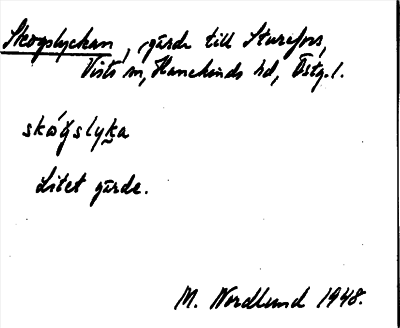 Skogslyckan, gärde till Sturefors,
Vists sn, Hanekinds hd, Östg. l.
skógslyka
Litet gärde.
M. Nordlund 1948.